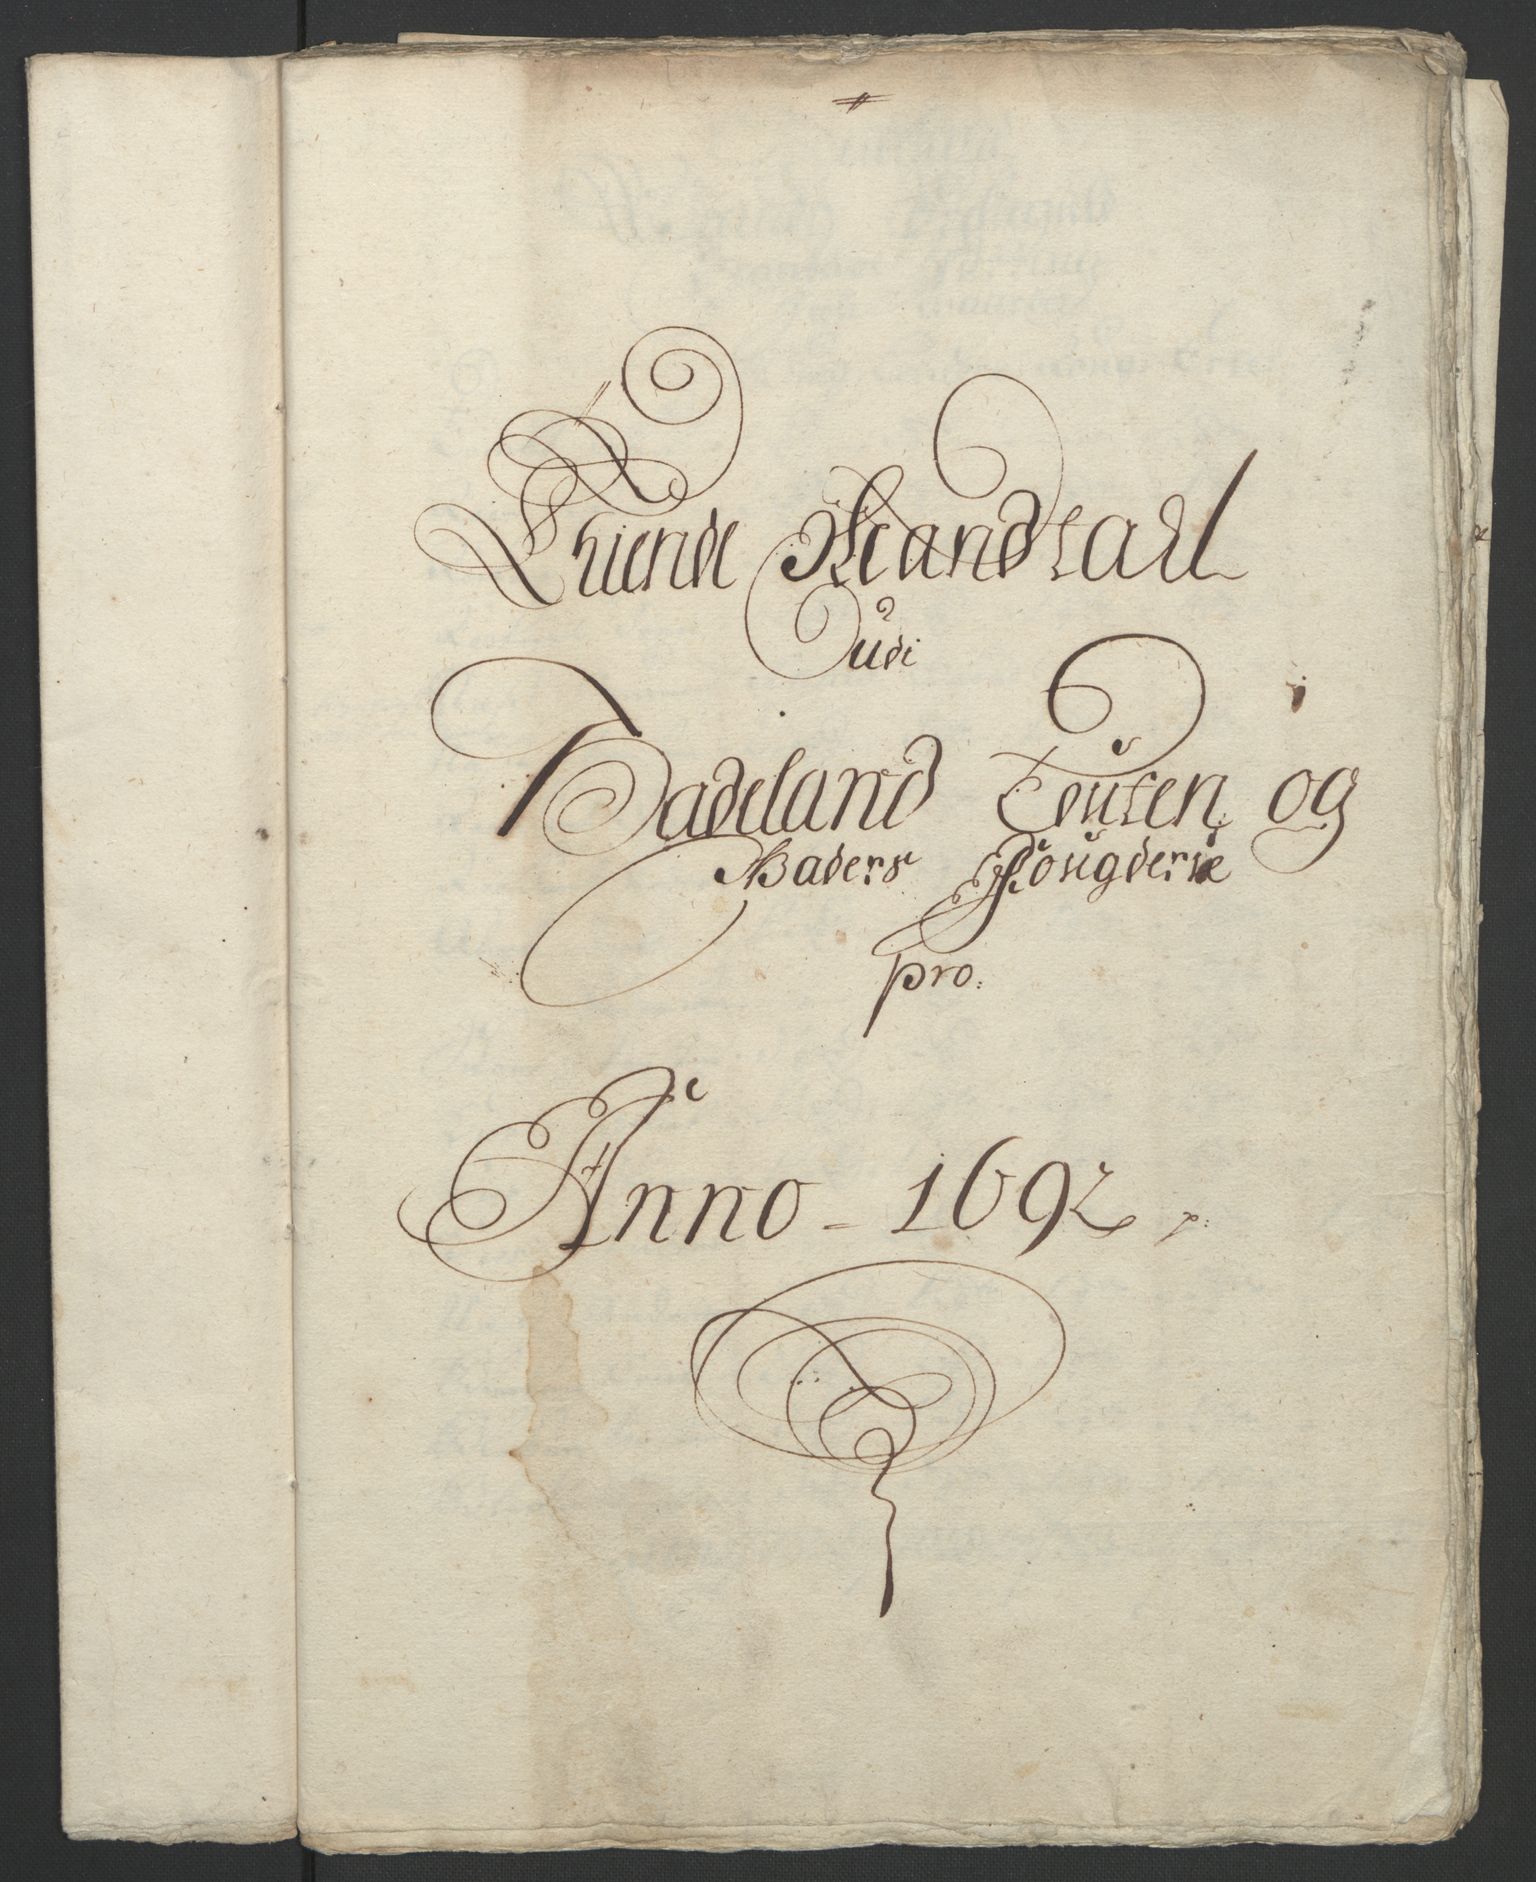 Thiende Mandtall
udi
Hadeland Toten og
Valders Fougderie
pro.
Anno - 1692